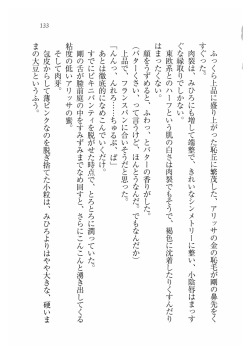 133
ふっくら上品に盛り上がった恥丘に繁茂した、アリッサの金の恥毛が剛の鼻先をく
すぐった。
肉裂は、みひろにも増して端整で、きれいなシンメトリーに整い、小陰唇はまっす
ぐな縁取りでしかない。
東欧系とのハーフという肌の白さは肉裂でもそうで、褐色に沈着したりくすんだり
はまったくない。
顔をうずめると、ふわっ、とバターの香りがした。
（バターくさい、って言うけど、ほんとうなんだ。でもなんだか）
上品で、フランスパンに合いそうだと思った。
「んんっ、んんろ……ちゅるぷ、ぱ」
あとは徹底的になめこんでいく。
すでにビキニパンティを脱がせた時点で、とろとろに潤っていた。
剛の舌が膣前庭の中をすみずみまでなめ回すと、さらにこんこんと湧き出してくる
粘度の低いアリッサの蜜。
そして肉芽。
包皮からして薄ピンクなのを脱ぎ捨てた小粒は、みひろよりはやや大きな、硬いま
まの大豆というふう。